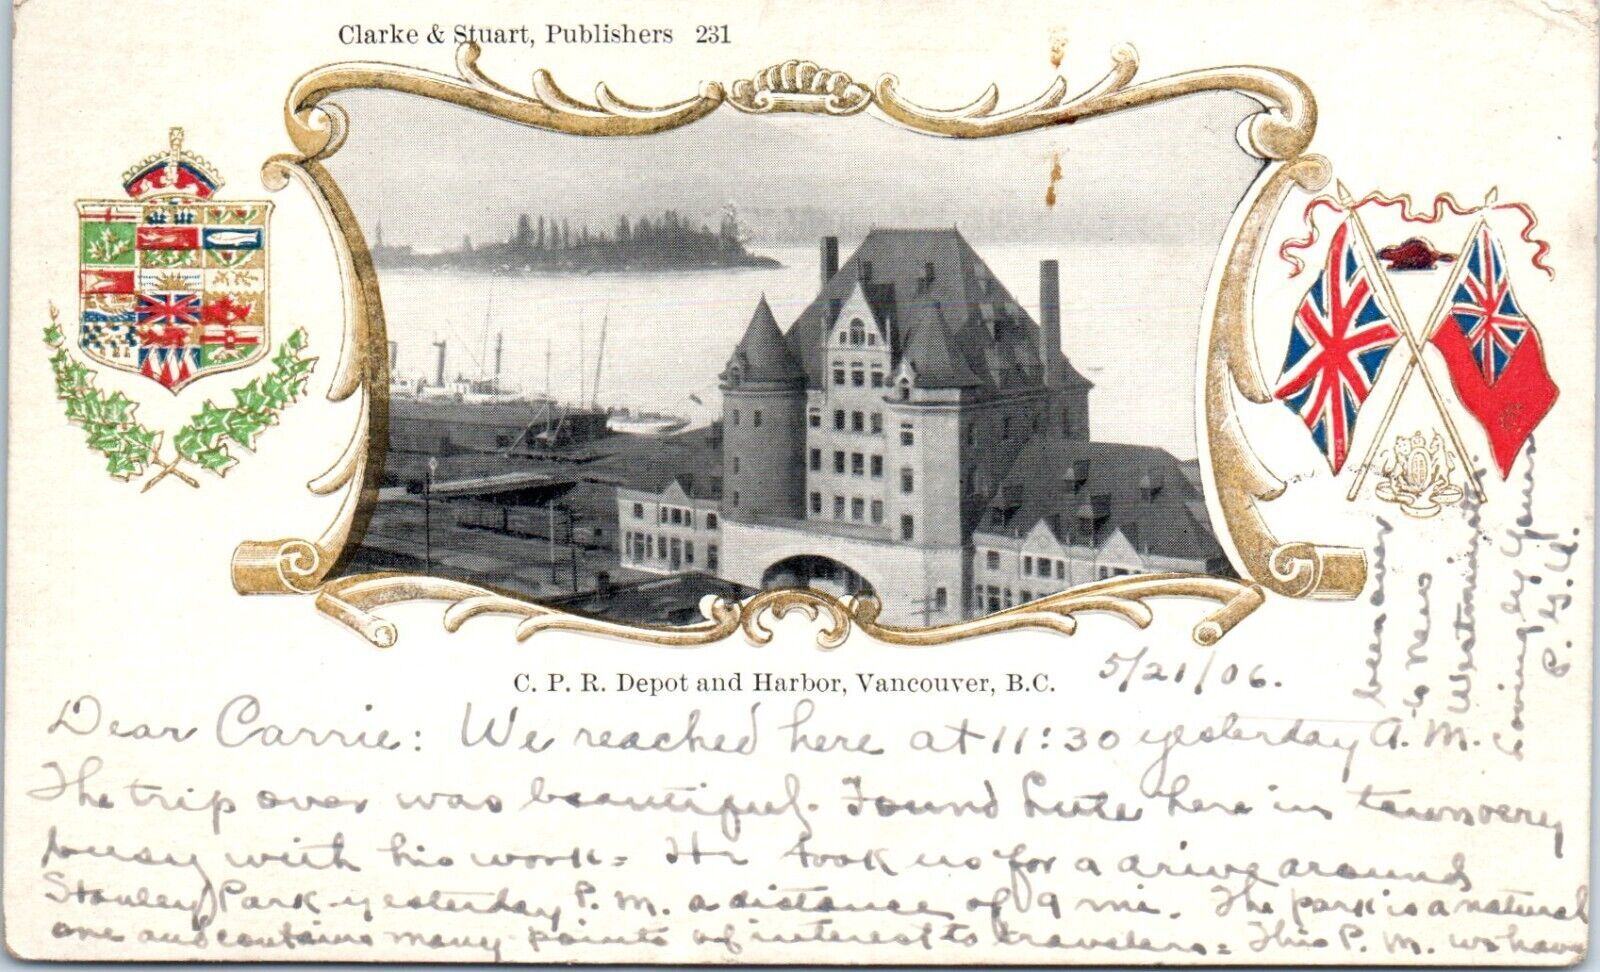 Clarke & Stuart, Publishers 231
C. P. R. Depot and Harbor, Vancouver, B.C.
5/21/06.
Dear Carrie: We reached here at 11:30 yesterday A.M.
The trip over was beautiful. Found here in town very
busy with his work = He took us for a drive around
Stanley Park yesterday P. M. a distance of 9 mi. The park is a natural
one and contains many points of interest to travelers = This P. M. we have
been over
to New
Westminster.
Lovingly Yours